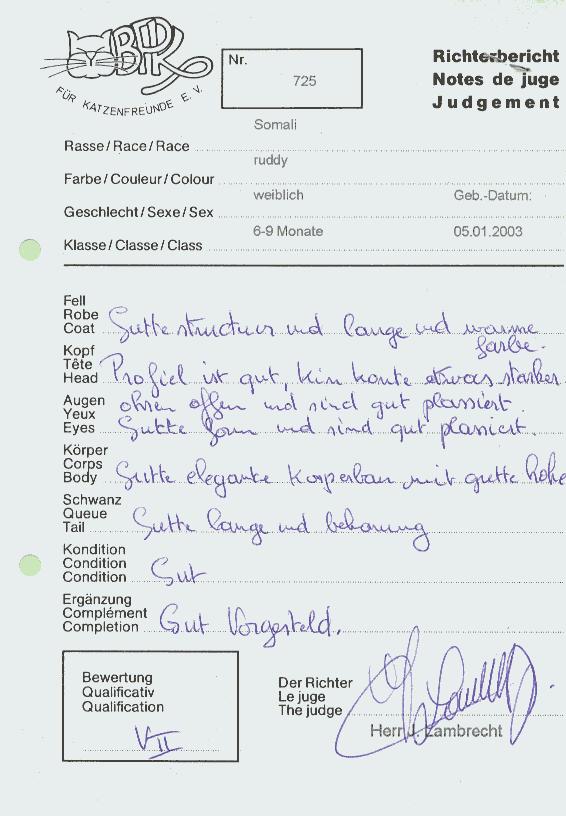 BDRK
FÜR KATZENFREUNDE E. V.
Nr.
725
Richterbericht
Notes de juge
Judgement
Somali
Rasse/Race/Race
ruddy
Farbe/Couleur/Colour
weiblich
Geb.-Datum:
Geschlecht/Sexe/Sex
6-9 Monate
05.01.2003
Klasse/Classe/Class
Fell
Robe
Coat
Gutte structuur und lange und warme
farbe.
Kopf
Tête
Head
Profiel ist gut, Kin konte etwas starker.
Augen
Yeux
Eyes
ohren offen und sind gut plassiert.
Gutte form und sind gut plassiert.
Körper
Corps
Body
Gutte elegante Korperbau mit gutte hohe
Schwanz
Queue
Tail
Gutte lange und beharung
Kondition
Condition
Condition
Gut
Ergänzung
Complément
Completion
Gut Vorgesteld.
Bewertung
Qualificativ
Qualification
V II
Der Richter
Le juge
The judge
Herr J. Lambrecht